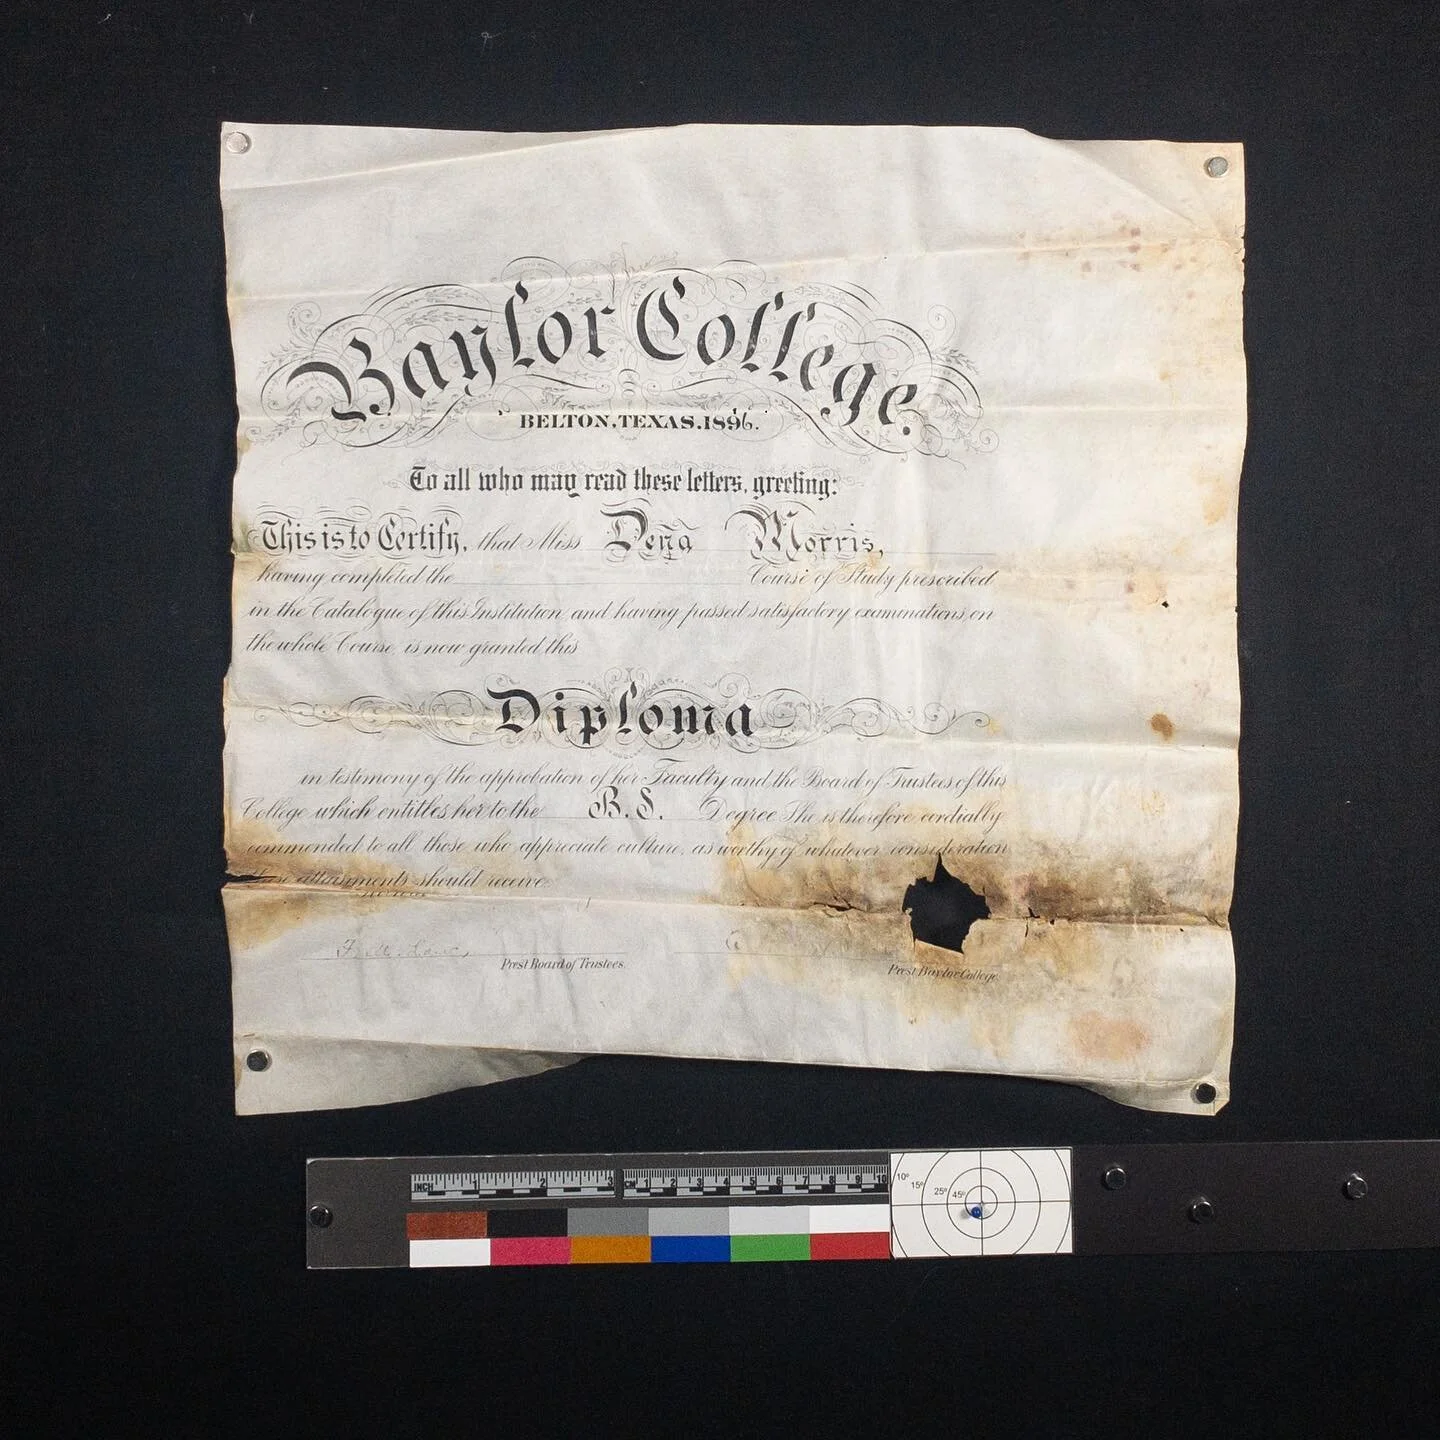 Baylor College.
BELTON, TEXAS. 1896.
To all who may read these letters, greeting:
This is to Certify, that Miss Dena Morris,
having completed the Course of Study prescribed
in the Catalogue of this Institution and having passed satisfactory examinations, on
the whole Course, is now granted this
Diploma
in testimony of the approbation of her Faculty and the Board of Trustees of this
College which entitles her to the B.S. Degree She is therefore cordially
commended to all those who appreciate culture, as worthy of whatever consideration
these attainments should receive.
Prest Board of Trustees.
Prest Baylor College.
INCH 1 2 3 CM 1 2 3 4 5 6 7 8 9 10
10° 15° 25° 45°